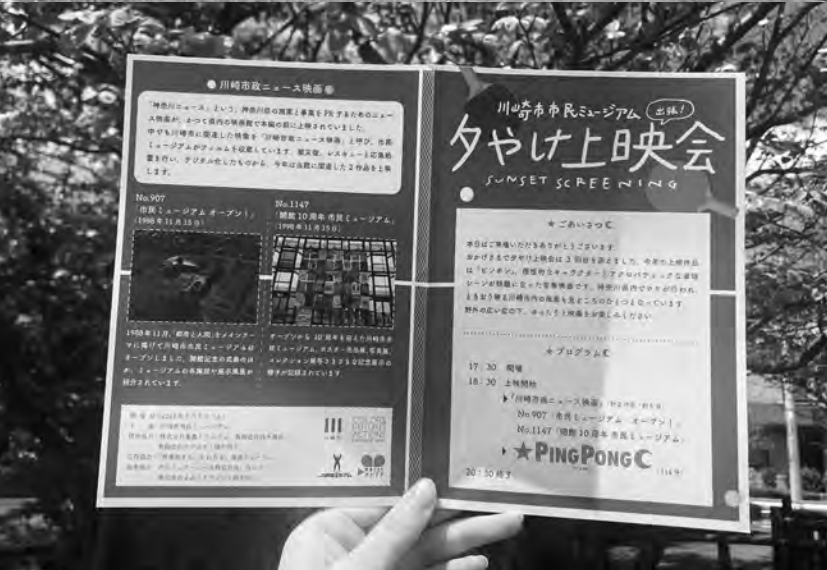 川崎市政ニュース映画
「神奈川ニュース」という、神奈川県の施策と事業をPRするためのニュー
ス映画が、かつて県内の映画館で本編の前に上映されていました。
中でも川崎市に関連した映像を「川崎市政ニュース映画」と呼び、市民
ミュージアムがフィルムを収蔵しています。被災後、レスキューと応急処
置を行い、デジタル化したものから、今年は当館に関連した2作品を上映
します。
No.907
「市民ミュージアム オープン！」
(1988年11月15日)
No.1147
「開館10周年 市民ミュージアム」
(1998年11月15日)
1988年11月、「都市と人間」をメインテー
マに掲げて川崎市市民ミュージアムが
オープンしました。開館記念の式典のほ
か、ミュージアムの各施設や展示風景が
紹介されています。
オープンから10周年を迎えた川崎市市
民ミュージアム。ポスター作品展、写真展、
コレクション展等さまざまな記念展示の
様子が記録されています。
川崎市市民ミュージアム
出張！
夕やけ上映会
SUNSET SCREENING
★ごあいさつ☾
本日はご来場いただきありがとうございます。
おかげさまで夕やけ上映会は3回目を迎えました。今年の上映作品
は「ピンポン」。個性的なキャラクターとアクロバティックな卓球
シーンが話題になった青春映画です。神奈川県内でロケが行われ、
ときおり映る川崎市内の風景も見どころのひとつとなっています。
野外の広い空の下、ゆったりと映画をお楽しみください。
★プログラム☾
17：30 開場
18：30 上映開始
「川崎市政ニュース映画」
No.907「市民ミュージアム オープン！」
No.1147「開館10周年 市民ミュージアム」
★PINGPONG☾
(114分)
20：50 終了
COLORS
FUTURE
ACTIONS